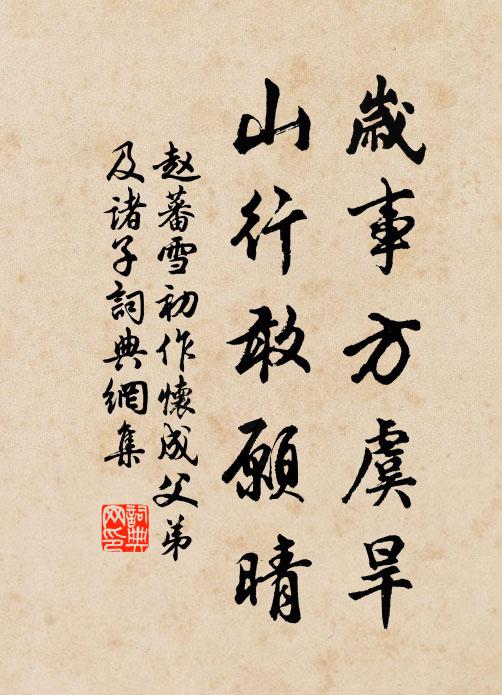 歲事方虞旱
山行敢願晴
赵蕃雪初作懷成父弟
及诸子詞典網集
詞典网印